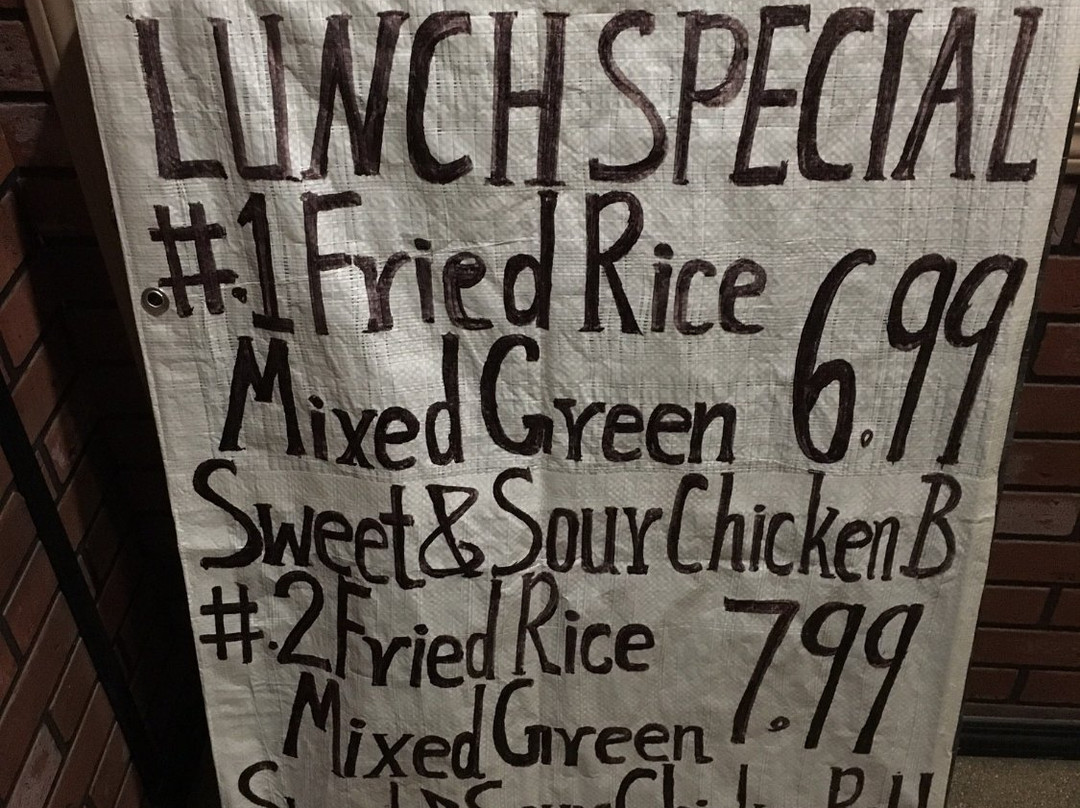 LUNCH SPECIAL
#.1 Fried Rice 6.99
Mixed Green
Sweet & Sour Chicken B
#.2 Fried Rice 7.99
Mixed Green